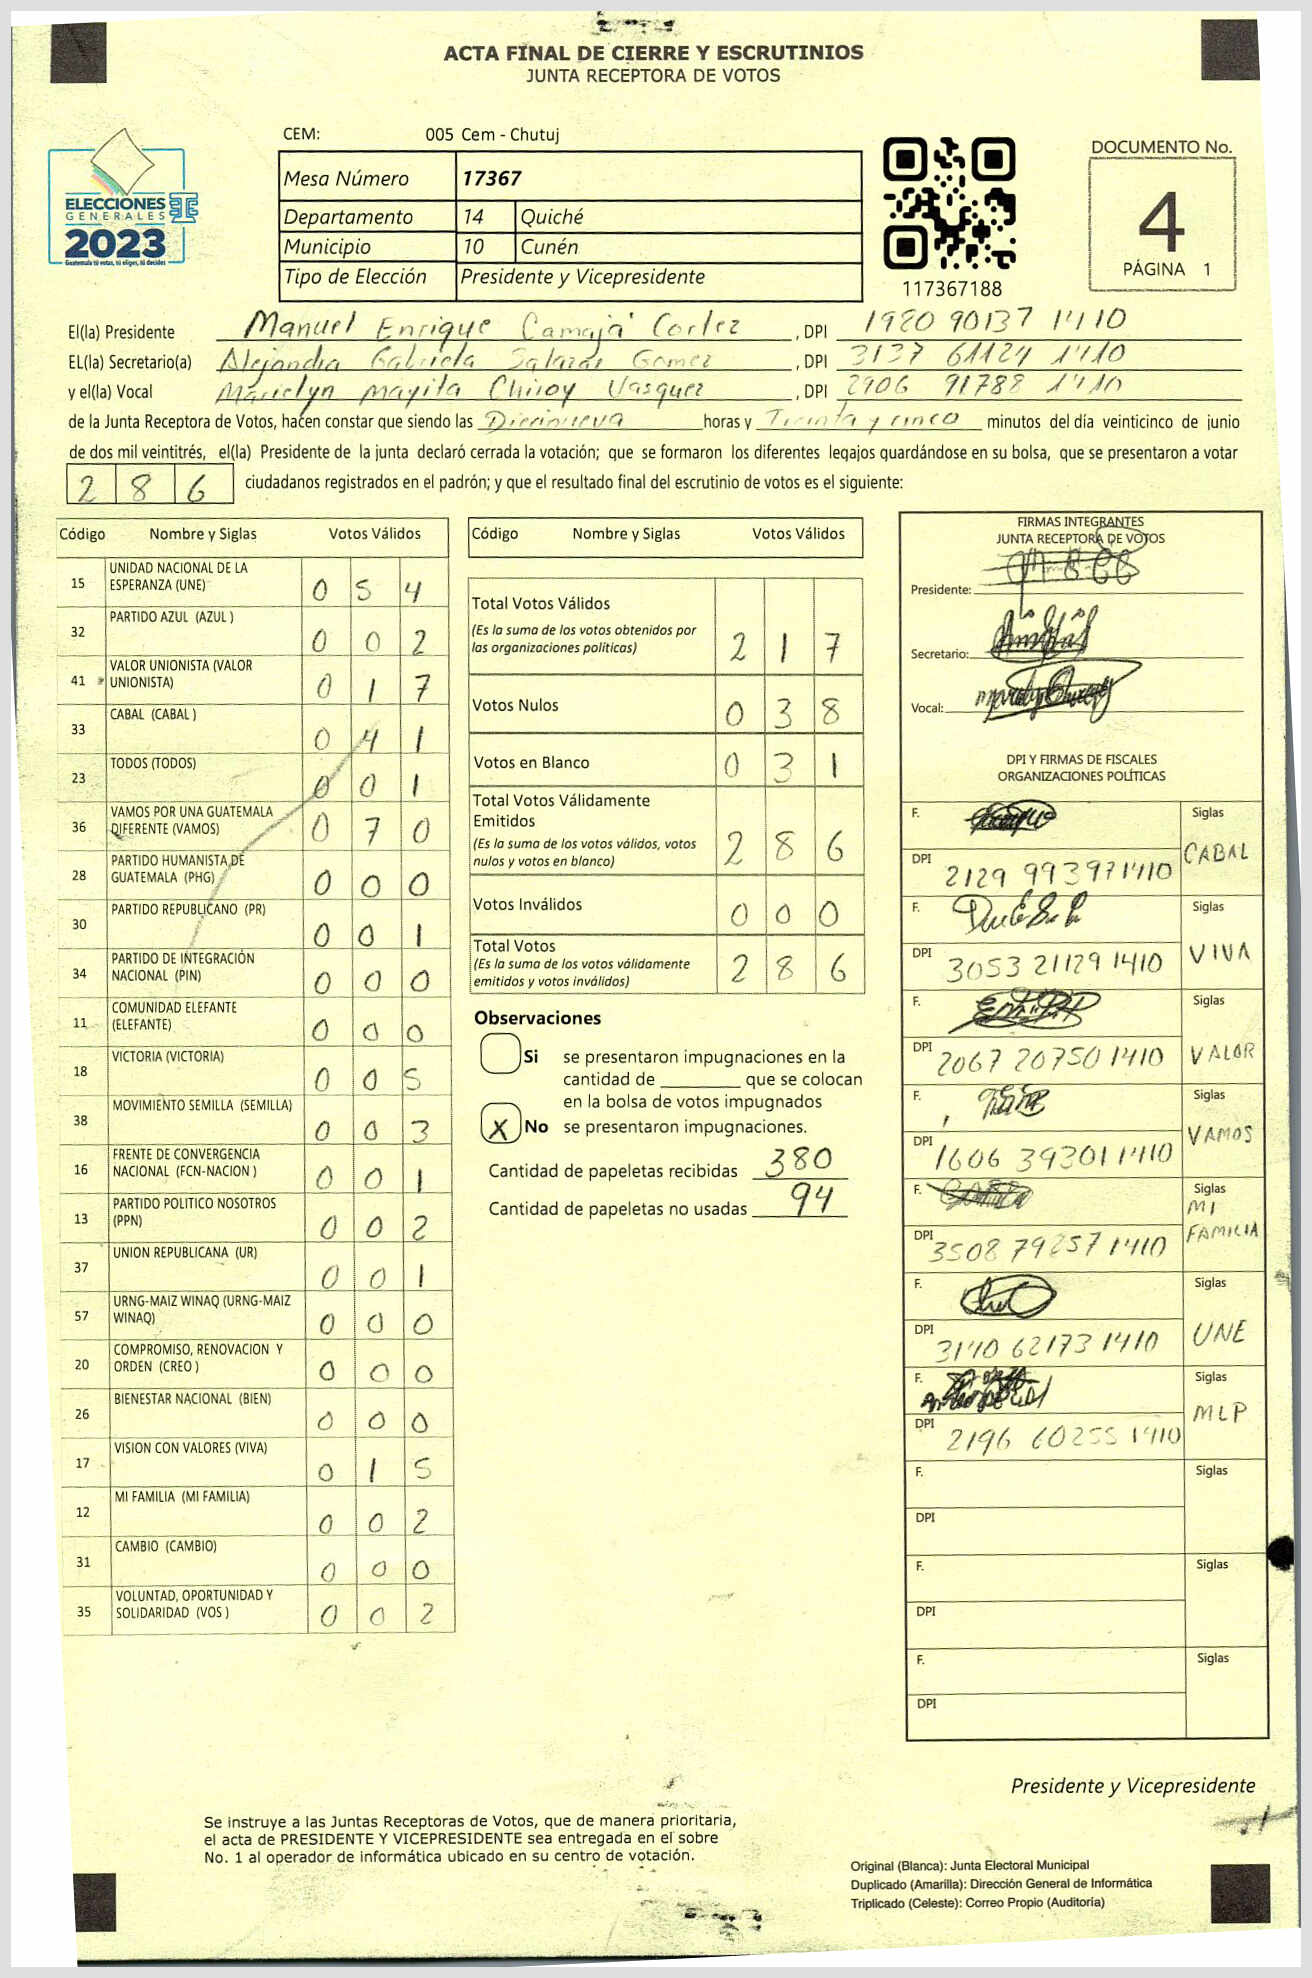 ACTA FINAL DE CIERRE Y ESCRUTINIOS
JUNTA RECEPTORA DE VOTOS
CEM: 005 Cem - Chutuj
ELECCIONES
GENERALES
2023
Guatemala tú votas, tú eliges, tú decides
Mesa Número 17367
Departamento 14 Quiché
Municipio 10 Cunén
Tipo de Elección Presidente y Vicepresidente
117367188
DOCUMENTO No.
4
PÁGINA 1
El(la) Presidente Manuel Enrique Camajá Cortez, DPI 1980 90137 1410
EL(la) Secretario(a) Alejandra Gabriela Salazar Gomez, DPI 3137 61124 1410
y el(la) Vocal Marielyn Mayita Chiroy Vasquez, DPI 2906 91788 1410
de la Junta Receptora de Votos, hacen constar que siendo las Diecinueva horas y Treinta y cinco minutos del día veinticinco de junio
de dos mil veintitrés, el(la) Presidente de la junta declaró cerrada la votación; que se formaron los diferentes legajos quardándose en su bolsa, que se presentaron a votar
2 8 6 ciudadanos registrados en el padrón; y que el resultado final del escrutinio de votos es el siguiente:
Código Nombre y Siglas Votos Válidos
15 UNIDAD NACIONAL DE LA ESPERANZA (UNE) 0 5 4
32 PARTIDO AZUL (AZUL ) 0 0 2
41 VALOR UNIONISTA (VALOR UNIONISTA) 0 1 7
33 CABAL (CABAL ) 0 4 1
23 TODOS (TODOS) 0 0 1
36 VAMOS POR UNA GUATEMALA DIFERENTE (VAMOS) 0 7 0
28 PARTIDO HUMANISTA DE GUATEMALA (PHG) 0 0 0
30 PARTIDO REPUBLICANO (PR) 0 0 1
34 PARTIDO DE INTEGRACIÓN NACIONAL (PIN) 0 0 0
11 COMUNIDAD ELEFANTE (ELEFANTE) 0 0 0
18 VICTORIA (VICTORIA) 0 0 5
38 MOVIMIENTO SEMILLA (SEMILLA) 0 0 3
16 FRENTE DE CONVERGENCIA NACIONAL (FCN-NACION ) 0 0 1
13 PARTIDO POLITICO NOSOTROS (PPN) 0 0 2
37 UNION REPUBLICANA (UR) 0 0 1
57 URNG-MAIZ WINAQ (URNG-MAIZ WINAQ) 0 0 0
20 COMPROMISO, RENOVACION Y ORDEN (CREO ) 0 0 0
26 BIENESTAR NACIONAL (BIEN) 0 0 0
17 VISION CON VALORES (VIVA) 0 1 5
12 MI FAMILIA (MI FAMILIA) 0 0 2
31 CAMBIO (CAMBIO) 0 0 0
35 VOLUNTAD, OPORTUNIDAD Y SOLIDARIDAD (VOS ) 0 0 2
Código Nombre y Siglas Votos Válidos
Total Votos Válidos
(Es la suma de los votos obtenidos por
las organizaciones politicas) 2 1 7
Votos Nulos 0 3 8
Votos en Blanco 0 3 1
Total Votos Válidamente
Emitidos
(Es la suma de los votos válidos, votos
nulos y votos en blanco) 2 8 6
Votos Inválidos 0 0 0
Total Votos
(Es la suma de los votos válidamente
emitidos y votos inválidos) 2 8 6
Observaciones
Si se presentaron impugnaciones en la
cantidad de ________ que se colocan
en la bolsa de votos impugnados
X No se presentaron impugnaciones.
Cantidad de papeletas recibidas 380
Cantidad de papeletas no usadas 94
FIRMAS INTEGRANTES
JUNTA RECEPTORA DE VOTOS
Presidente:
Secretario:
Vocal:
DPI Y FIRMAS DE FISCALES
ORGANIZACIONES POLÍTICAS
F. Siglas
DPI 2129 99397 1410 CABAL
F. Siglas
DPI 3053 21129 1410 VIVA
F. Siglas
DPI 2067 20750 1410 VALOR
F. Siglas
DPI 1606 39301 1410 VAMOS
F. Siglas
DPI 3508 79257 1410 MI FAMILIA
F. Siglas
DPI 3140 62173 1410 UNE
F. Siglas
DPI 2196 60255 1410 MLP
F. Siglas
DPI
F. Siglas
DPI
F. Siglas
DPI
Presidente y Vicepresidente
Se instruye a las Juntas Receptoras de Votos, que de manera prioritaria,
el acta de PRESIDENTE Y VICEPRESIDENTE sea entregada en el sobre
No. 1 al operador de informática ubicado en su centro de votación.
Original (Blanca): Junta Electoral Municipal
Duplicado (Amarilla): Dirección General de Informática
Triplicado (Celeste): Correo Propio (Auditoría)